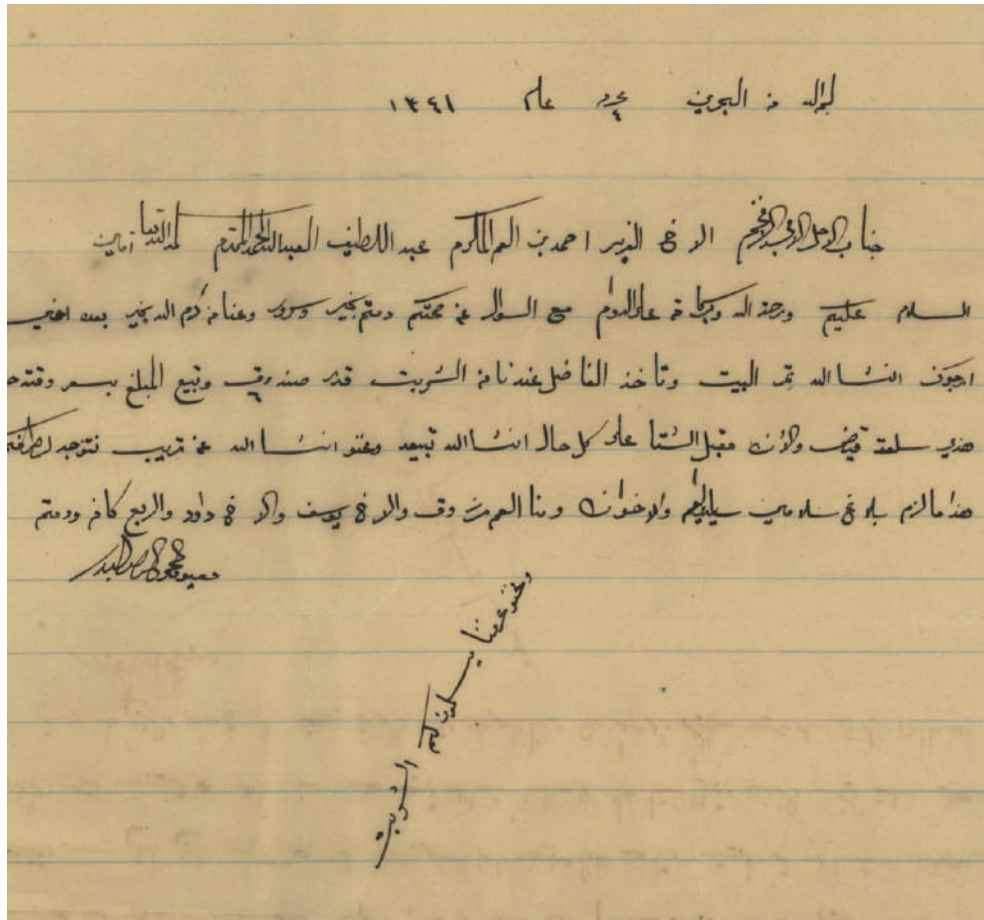 لله من البحرين عام ١٣٤١
جناب الاجل الامجد الافخم الاخ العزيز احمد بن العم المكرم عبد اللطيف العبدالله الحمد المحترم امين
السلام عليكم ورحمة الله وبركاته على الدوام مع السوال عن صحتكم دمتم بخير وسرور وعنا من كرم الله بخير بعده اخي
ارجوك انشا الله تمر البيت وتاخذ الفاضل عندنا من الشربت قدر صندوق وتبيع المبلغ بسعر وقته
هذي سلعة قيض والأن مقبل الشتا على كل حال انشا الله تبيعه ونحنو انشا الله عن قريب نتوجه لطرفكم
هذا مالزم بلاغ سلامي سيدي العم والاخوان ومنا العم مرزوق والاخ يوسف والاخ داود والربع كافه ودمتم
ونحنو عرفنا لكم الشربت